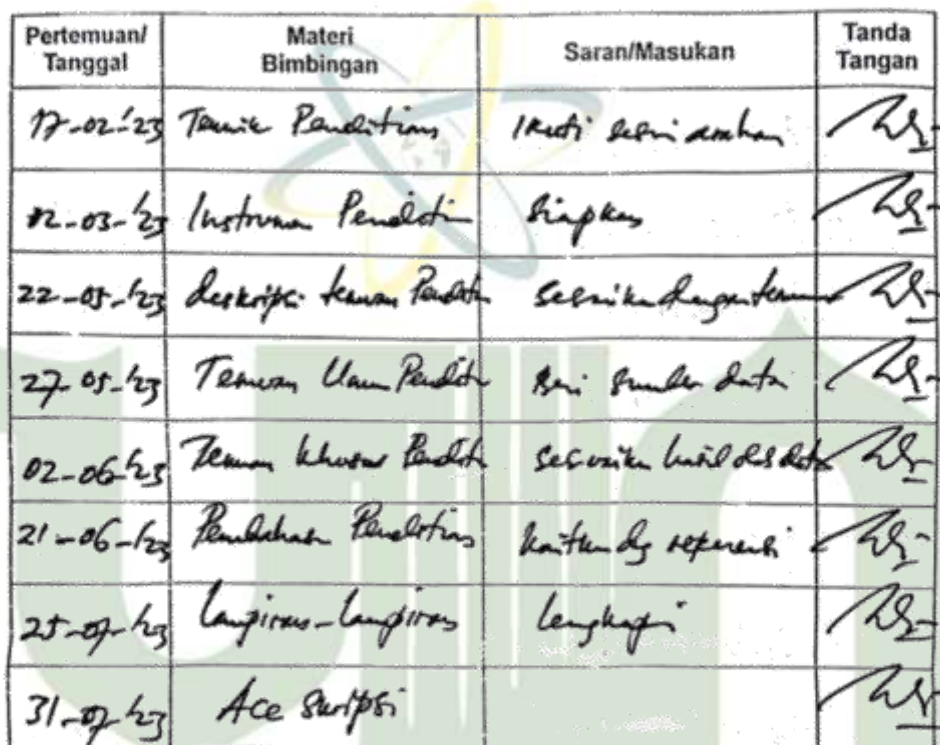 Pertemuan/ Tanggal | Materi Bimbingan | Saran/Masukan | Tanda Tangan
17-02-'23 Penelitian Ikuti arahan
02-03-'23 Instrumen Penelitian Siapkan
22-05-'23 deskripsi temuan Penelitian sesuaikan dengan temuan
27-05-'23 Temuan Umum Penelitian Beri sumber data
02-06-'23 Temuan khusus Penelitian sesuaikan hasil data
21-06-'23 Pembahasan Penelitian kaitkan dg referensi
25-07-'23 Lampiran-lampiran lengkapi
31-07-'23 Acc Skripsi